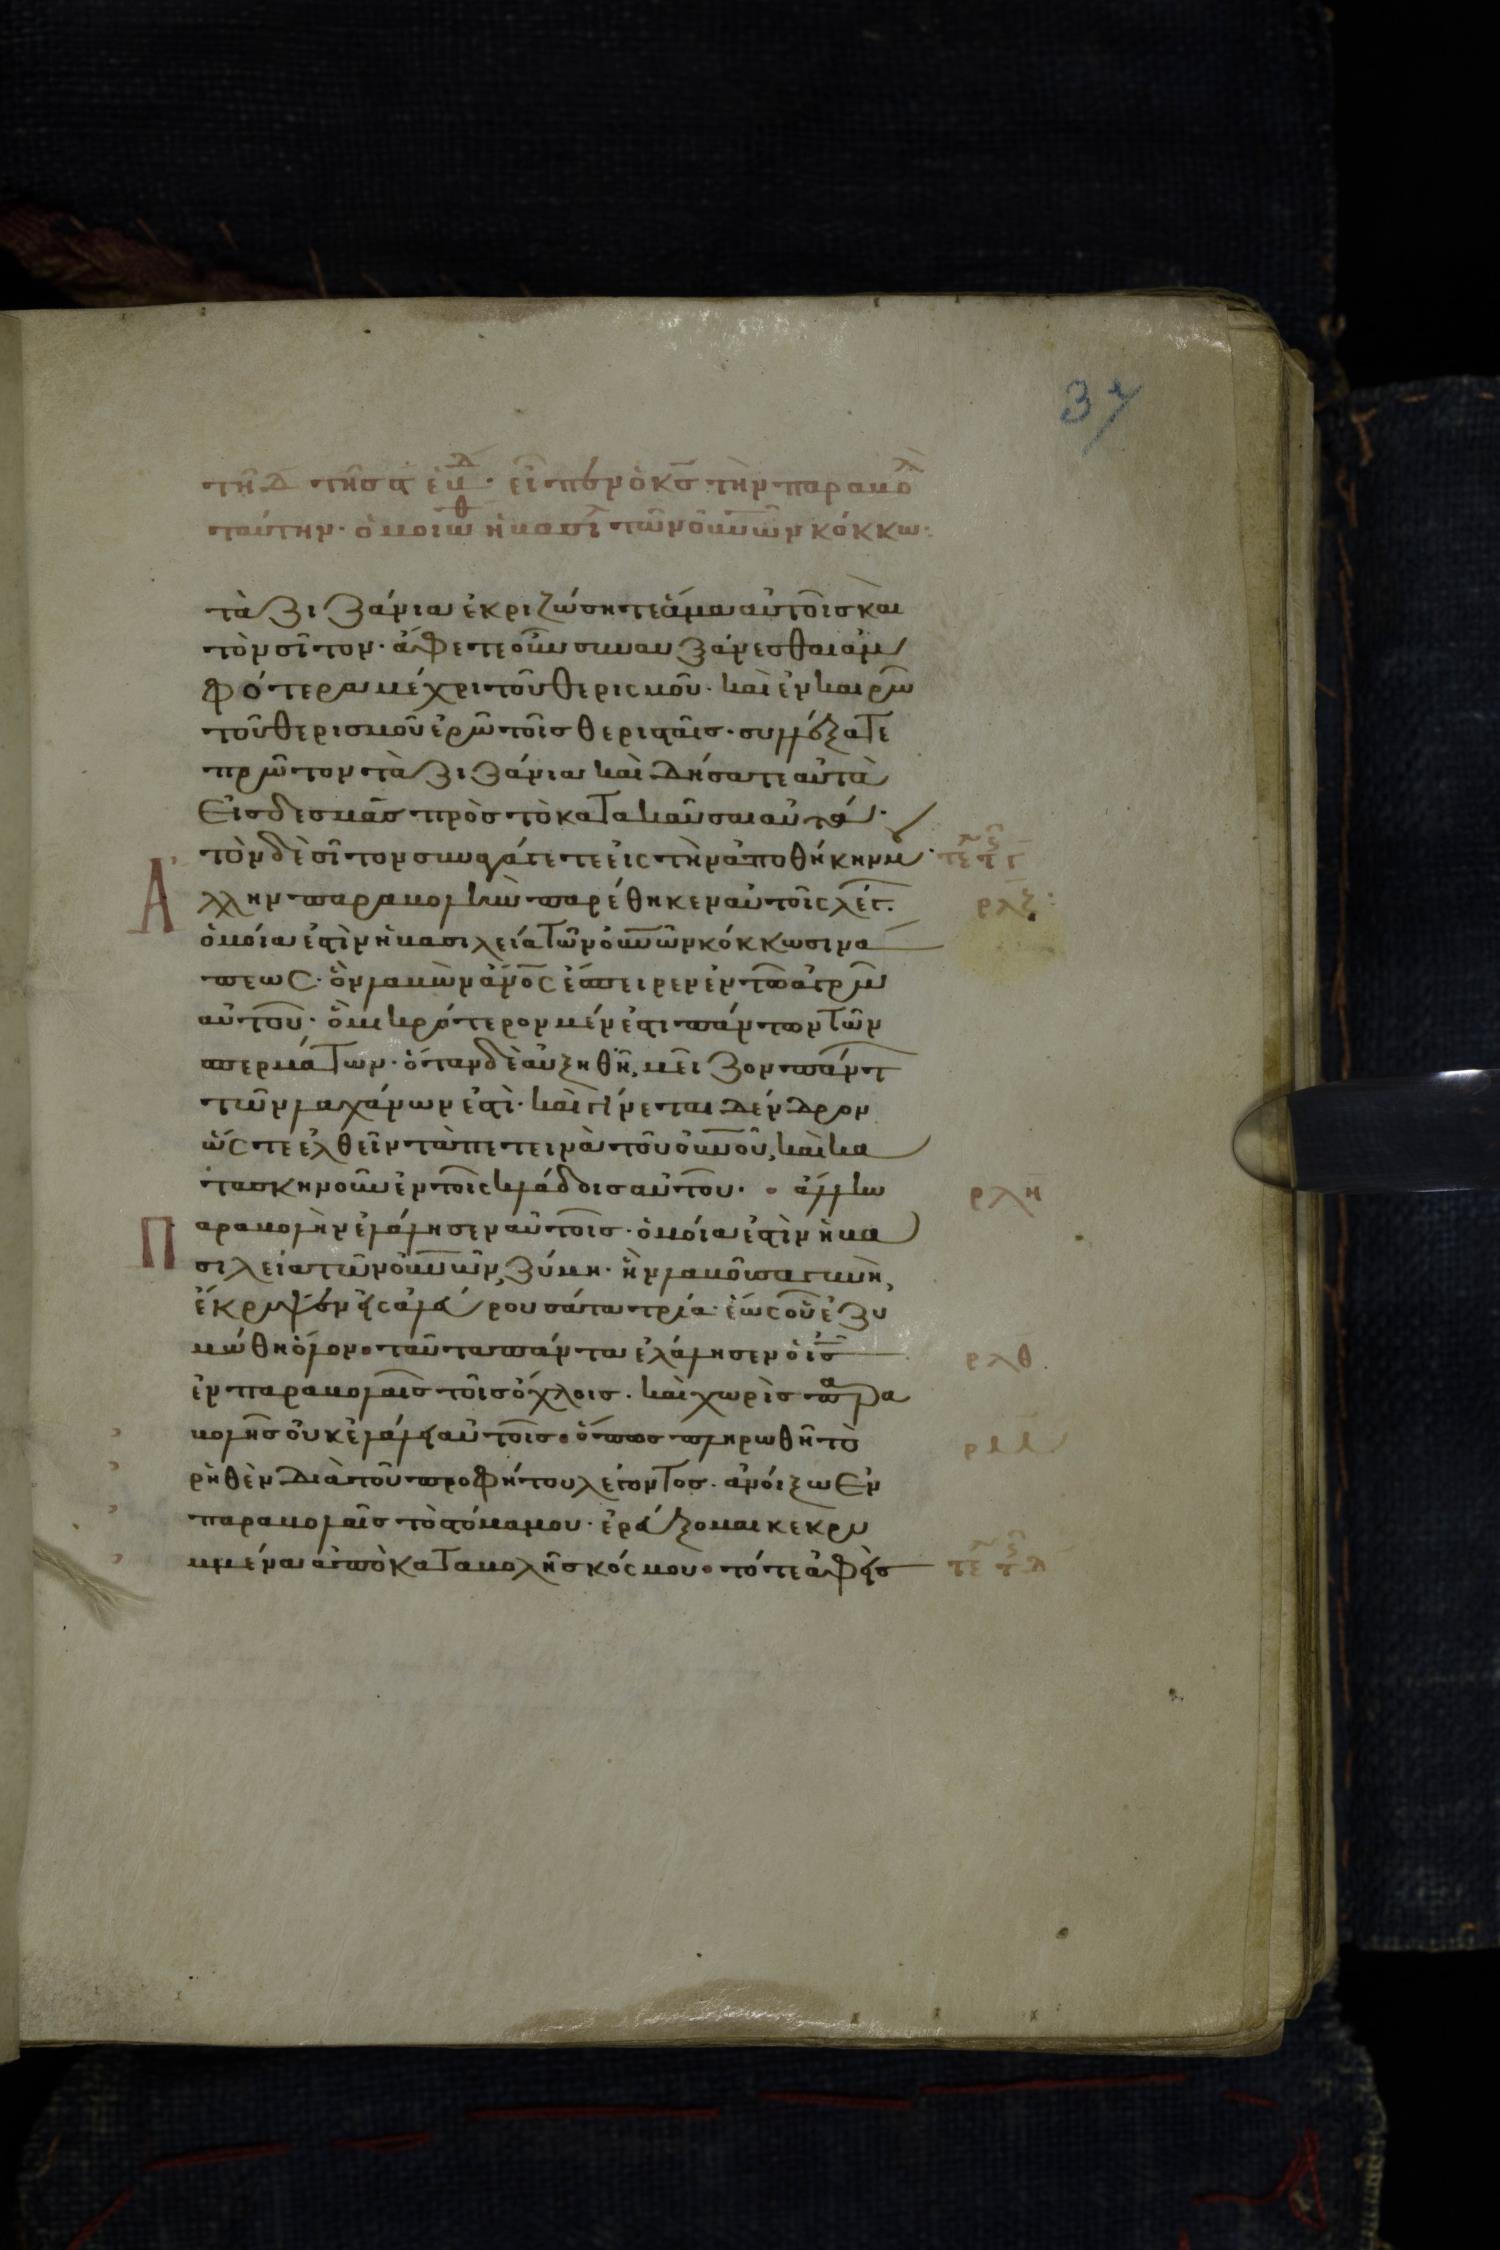 37
τῆ δ τῆς ϛ ἑβδ · εἶπεν ὁ κς τὴν παραβολ
ταύτην · ὁμοιώθ ἡ βασιλ τῶν οὐνῶν κόκκω ·
τὰ ζιζάνια ἐκριζώσητε ἅμα αὐτοῖς καὶ
τὸν σῖτον · ἄφετε οὖν συναυξάνεσθαι ἀμ
φότερα μέχρι τοῦ θερισμοῦ · καὶ ἐν καιρῶ
τοῦ θερισμοῦ ἐρῶ τοῖς θερισταῖς · συλλέξατε
πρῶτον τὰ ζιζάνια καὶ δήσατε αὐτὰ
εἰς δεσμὰς πρὸς τὸ κατακαῦσαι αὐτά ·
τὸν δὲ σῖτον συναγάγετε εἰς τὴν ἀποθήκην μου · τε
Ἄ ρλζ
λλην παραβολὴν παρέθηκεν αὐτοῖς λέγ ·
ὁμοία ἐστὶν ἡ βασιλεία τῶν οὐνῶν κόκκω σινά
πεως · ὃν λαβὼν ἄνος ἔσπειρεν ἐν τῶ ἀγρῶ
αὐτοῦ · ὃ μικρότερον μέν ἐστι πάντων τῶν
σπερμάτων · ὅταν δὲ αὐξηθῆ, μεῖζον πάντ
τῶν λαχάνων ἐστὶ · καὶ γίνεται δένδρον
ὥστε ἐλθεῖν τὰ πετεινὰ τοῦ οὐνοῦ, καὶ κα
τασκηνοῦν ἐν τοῖς κλάδοις αὐτοῦ · ἄλλην ρλη
Π
αραβολὴν ἐλάλησεν αὐτοῖς · ὁμοία ἐστὶν ἡ βα
σιλεία τῶν οὐνῶν, ζύμη · ἣν λαβοῦσα γυνὴ,
ἔκρυψεν εἰς ἀλεύρου σάτα τρία · ἕως οὗ ἐζυ
μώθη ὅλον · ταῦτα πάντα ἐλάλησεν ὁ ις ρλθ
ἐν παραβολαῖς τοῖς ὄχλοις · καὶ χωρὶς παρα
βολῆς οὐκ ἐλάλει αὐτοῖς · ὅπως πληρωθῆ τὸ
ῥηθὲν διὰ τοῦ προφήτου λέγοντος · ἀνοίξω ἐν
παραβολαῖς τὸ στόμα μου · ἐρεύξομαι κεκρυ
μμένα ἀπὸ καταβολῆς κόσμου · τότε ἀφεὶς